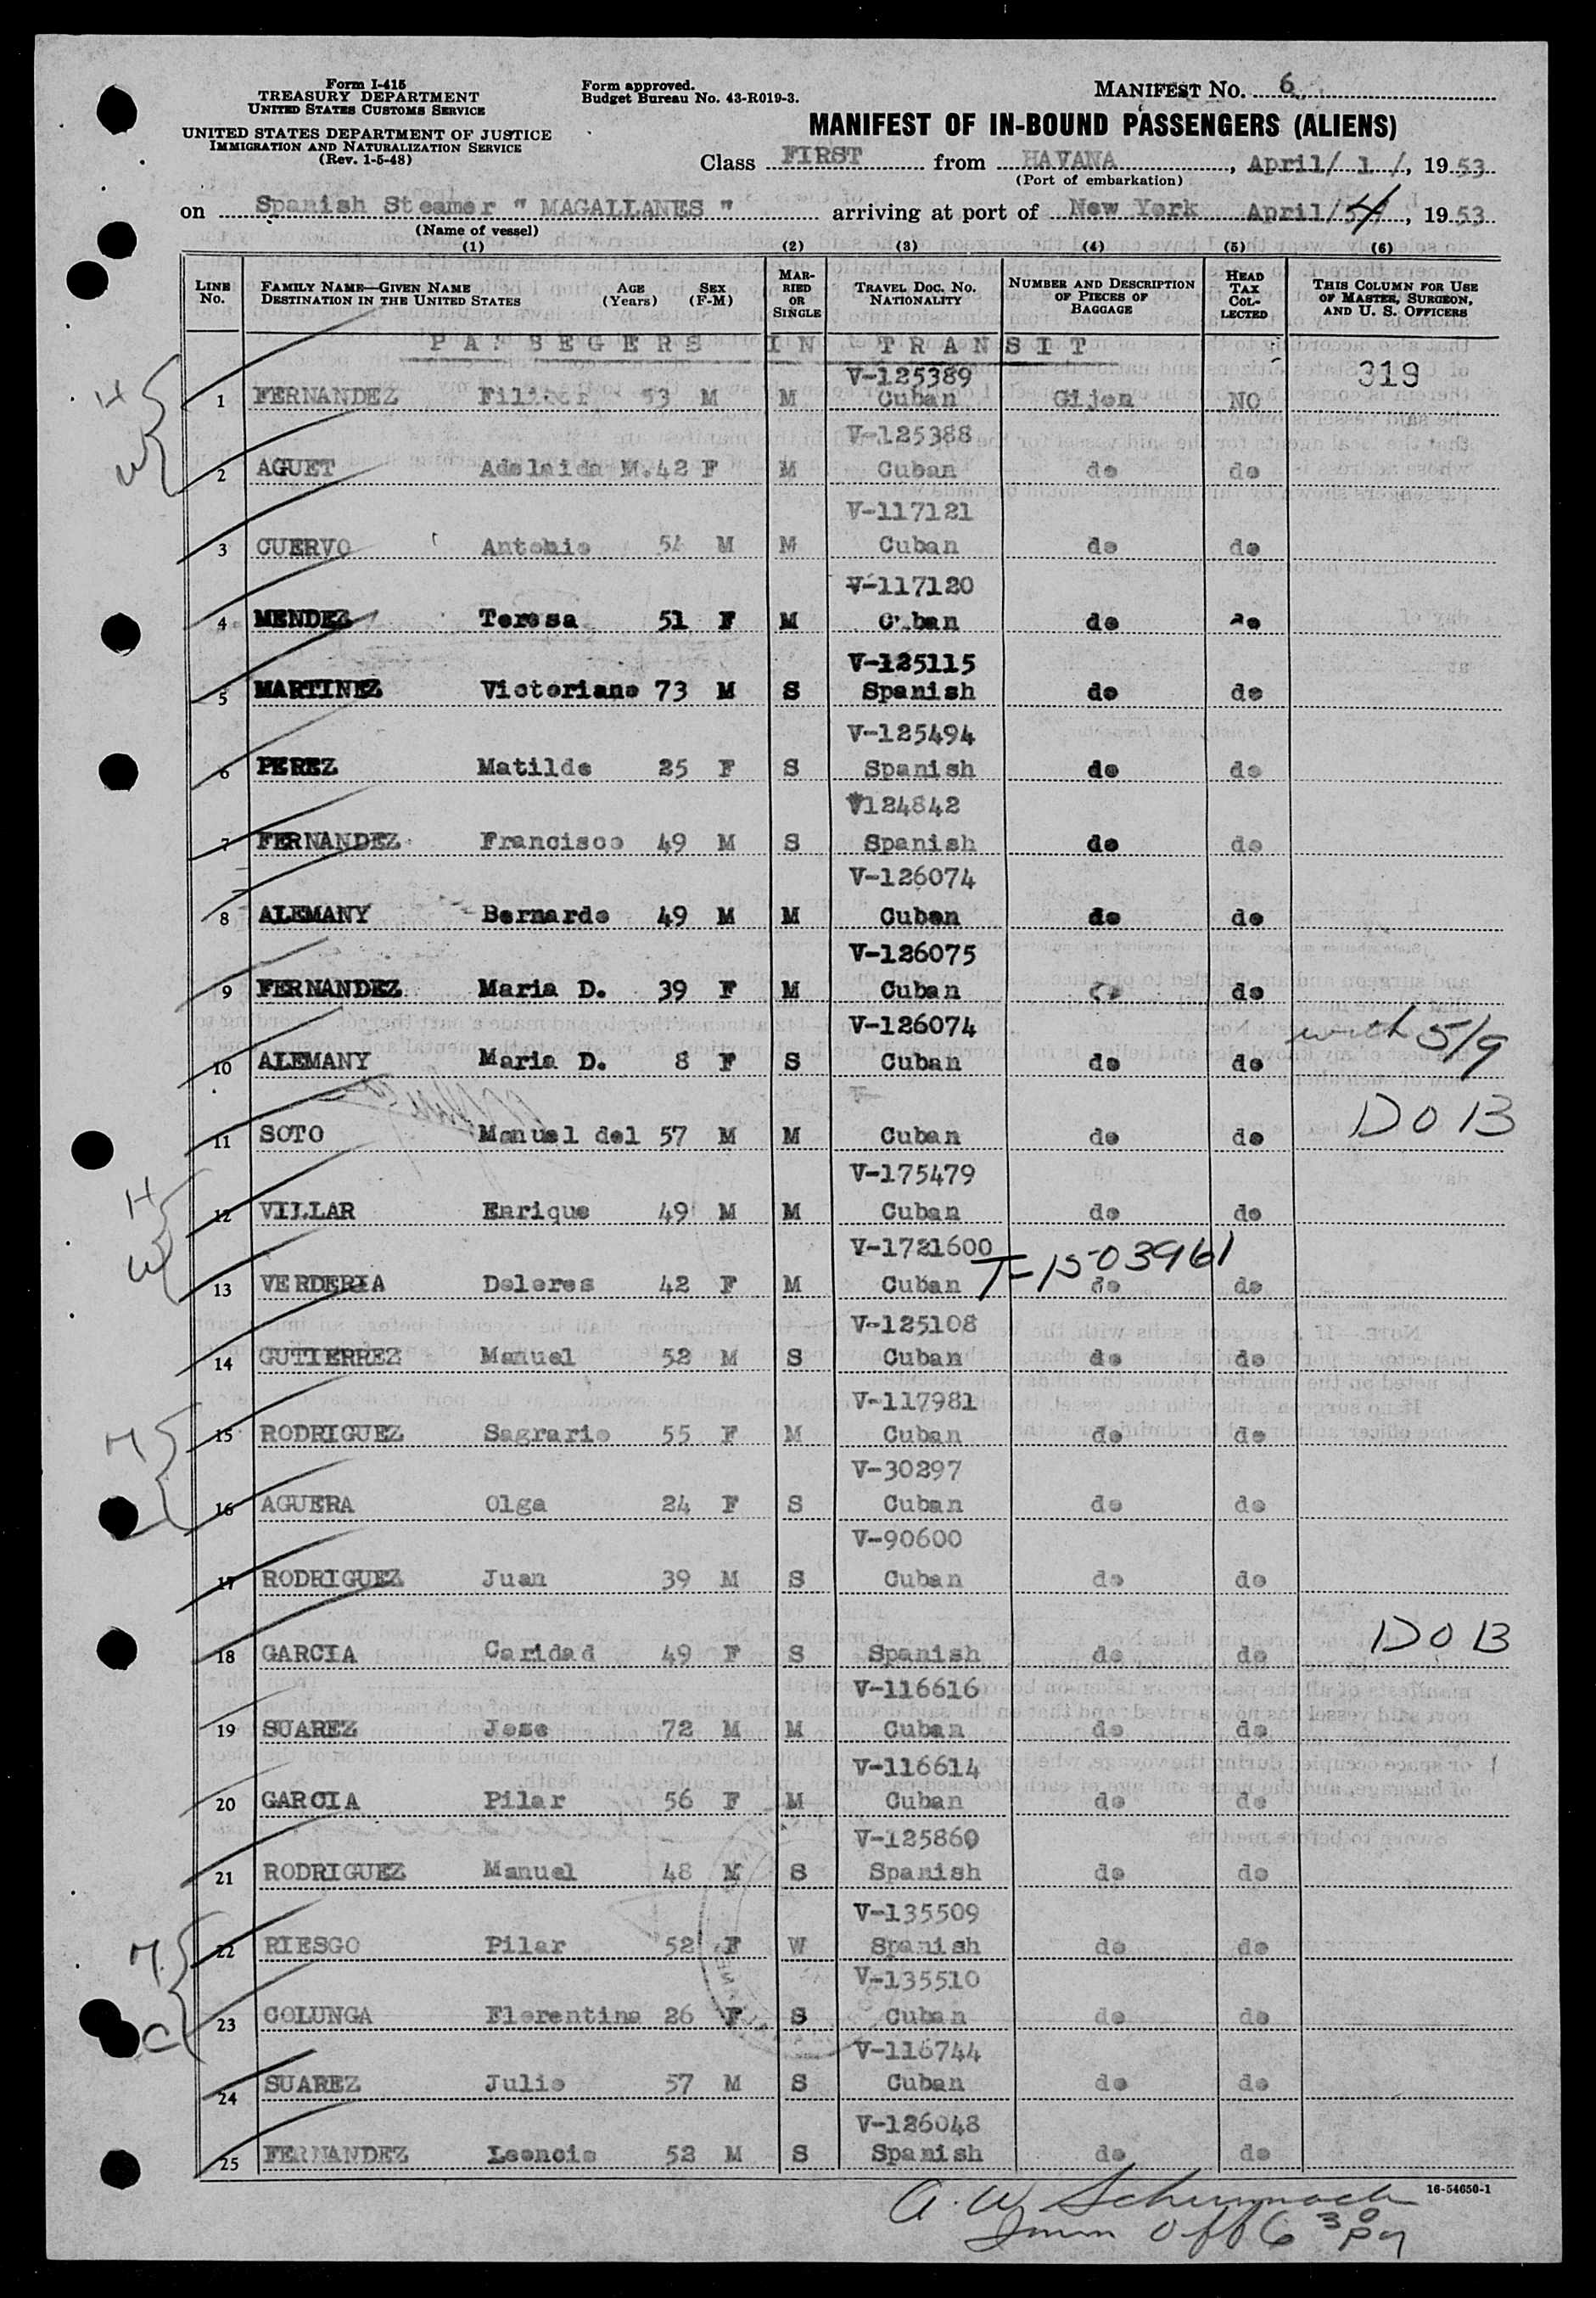 Form I-415
TREASURY DEPARTMENT
UNITED STATES CUSTOMS SERVICE
UNITED STATES DEPARTMENT OF JUSTICE
IMMIGRATION AND NATURALIZATION SERVICE
(Rev. 1-5-48)
Form approved.
Budget Bureau No. 43-R019-3.
MANIFEST No. 6
MANIFEST OF IN-BOUND PASSENGERS (ALIENS)
Class FIRST from HAVANA, April/ 1 /, 1953
(Port of embarkation)
on Spanish Steamer " MAGALLANES " arriving at port of New York April/ 4/, 1953
(Name of vessel)
(1) (2) (3) (4) (5) (6)
LINE No. FAMILY NAME—GIVEN NAME DESTINATION IN THE UNITED STATES AGE (Years) SEX (F-M) MARRIED OR SINGLE TRAVEL DOC. NO. NATIONALITY NUMBER AND DESCRIPTION OF PIECES OF BAGGAGE HEAD TAX COLLECTED THIS COLUMN FOR USE OF MASTER, SURGEON, AND U. S. OFFICERS
PASSEGERS IN TRANSIT
319
V-125389
1 FERNANDEZ 53 M M Cuban Gijon NO
V-125388
2 AGUET Adelaida M. 42 F M Cuban do do
V-117121
3 CUERVO Antonio 54 M M Cuban do do
V-117120
4 MENDEZ Teresa 51 F M Cuban do do
V-125115
5 MARTINEZ Victoriano 73 M S Spanish do do
V-125494
6 PEREZ Matilde 25 F S Spanish do do
V124842
7 FERNANDEZ Francisco 49 M S Spanish do do
V-126074
8 ALEMANY Bernardo 49 M M Cuban do do
V-126075
9 FERNANDEZ Maria D. 39 F M Cuban do do
V-126074 with 5/9
10 ALEMANY Maria D. 8 F S Cuban do do
11 SOTO Manuel del 57 M M Cuban do do D O B
V-175479
12 VILLAR Enrique 49 M M Cuban do do
V-1721600 T-1503961
13 VERDERIA Dolores 42 F M Cuban do do
V-125108
14 GUTIERREZ Manuel 52 M S Cuban do do
V-117981
15 RODRIGUEZ Sagrario 55 F M Cuban do do
V-30297
16 AGUERA Olga 24 F S Cuban do do
V-90600
17 RODRIGUEZ Juan 39 M S Cuban do do
18 GARCIA Caridad 49 F S Spanish do do D O B
V-116616
19 SUAREZ Jose 72 M M Cuban do do
V-116614
20 GARCIA Pilar 56 F M Cuban do do
V-125860
21 RODRIGUEZ Manuel 48 M S Spanish do do
V-135509
22 RIESGO Pilar 52 F W Spanish do do
V-135510
23 COLUNGA Florentina 26 F S Cuban do do
V-116744
24 SUAREZ Julio 57 M S Cuban do do
V-126048
25 FERNANDEZ Leoncio 52 M S Spanish do do
16-54650-1
A. W.
Imm Off 6 30 P